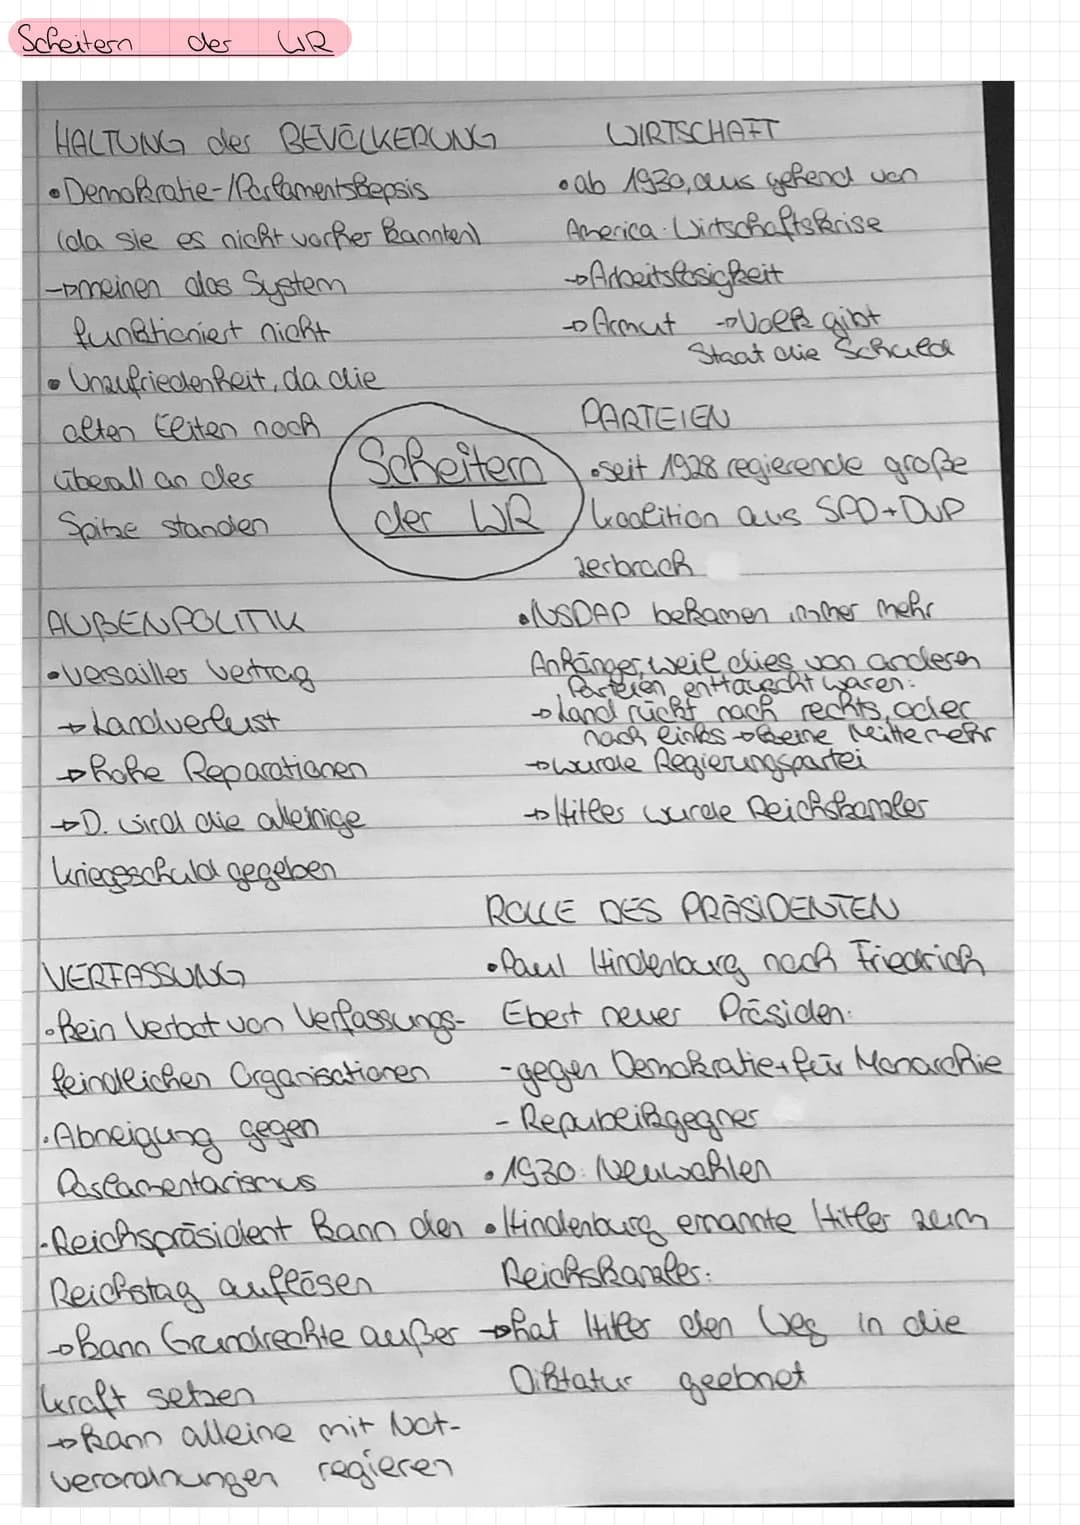 Scheitern der WR
HALTUNG der BEVÖLKERUNG
• Demokratie-/Parlamentskepsis
(da sie es nicht vorher kannten)
→ meinen das System
funktioniert nicht
• Unzufriedenheit, da die
alten Eliten noch
überall an der
Spitze standen
WIRTSCHAFT
• ab 1930, aus gehend von
America: Wirtschaftskrise
→ Arbeitslosigkeit
→ Armut → Volk gibt
Staat die Schuld
Scheitern
der WR
PARTEIEN
• seit 1928 regierende große
Koalition aus SPD + DVP
zerbrach
• NSDAP bekamen immer mehr
Anhänger, weil dies von anderen
Parteien enttäuscht waren:
→ Land rückt nach rechts, oder
nach links → keine Mitte mehr
→ wurde Regierungspartei
→ Hitler wurde Reichskanzler
AUßENPOLITIK
• Versailler Vertrag
→ Landverlust
→ hohe Reparationen
→ D. wird die alleinige
Kriegsschuld gegeben
ROLLE DES PRÄSIDENTEN
• Paul Hindenburg nach Friedrich
Ebert neuer Präsiden:
- gegen Demokratie + für Monarchie
- Republikgegner
• 1930: Neuwahlen
• Hindenburg ernannte Hitler zum
Reichskanzler:
→ hat Hitler den Weg in die
Diktatur geebnet
VERFASSUNG
• kein Verbot von Verfassungs-
feindlichen Organisationen
• Abneigung gegen
Parlamentarismus
• Reichspräsident kann den
Reichstag auflösen
→ kann Grundrechte außer
Kraft setzen
→ kann alleine mit Not-
verordnungen regieren